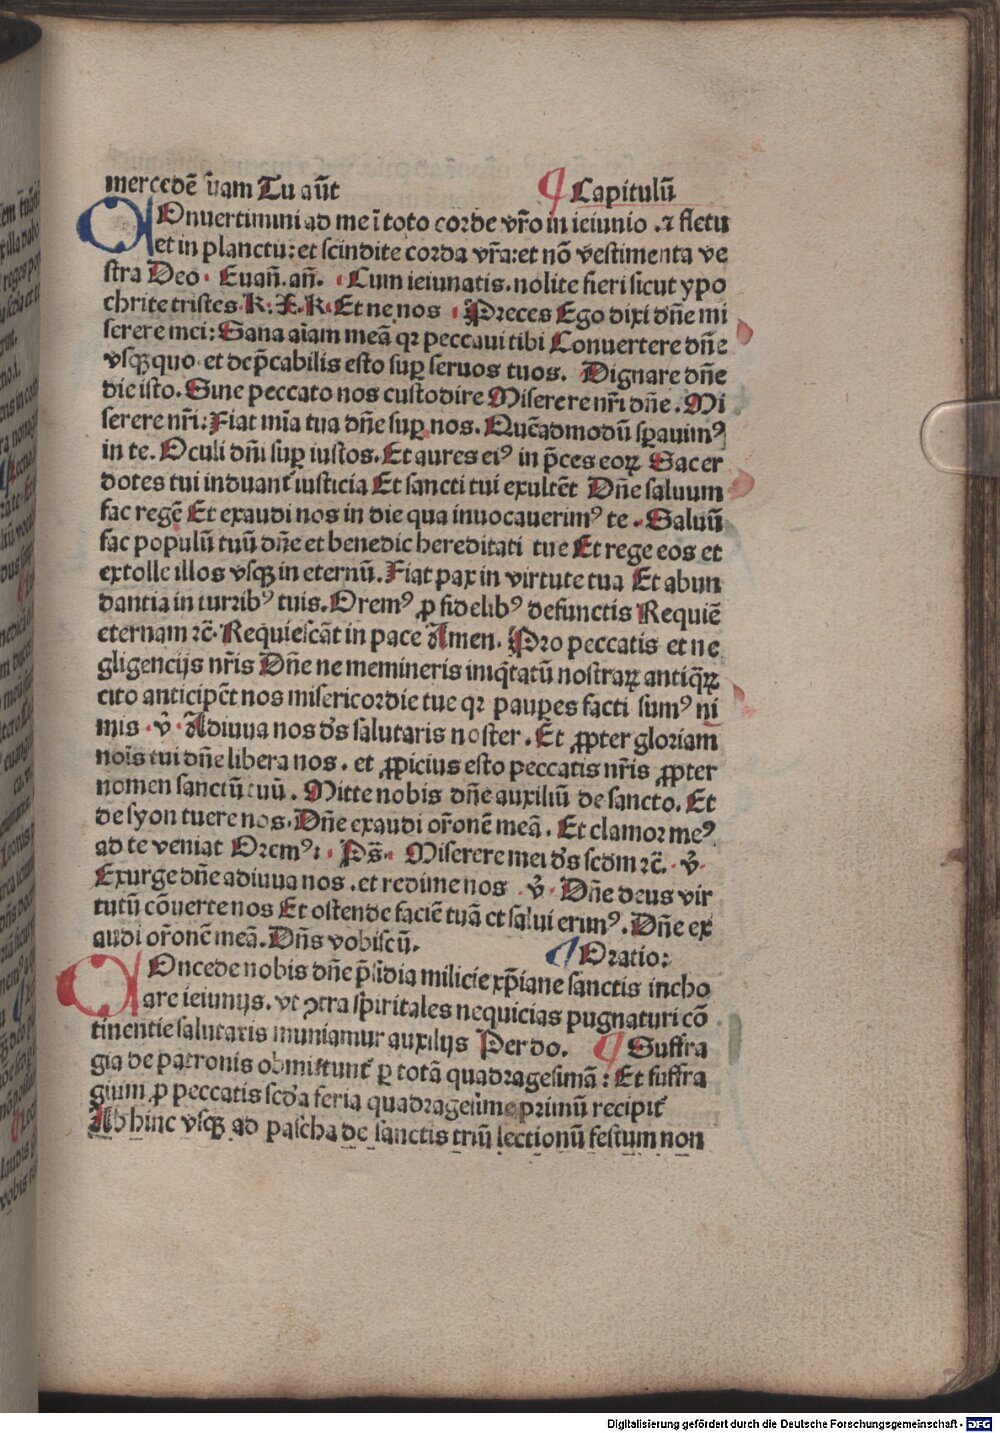 mercedē ṽam Tu aūt ¶ Capitulū
COnuertimini ad me ī toto corde vr̄o in ieiunio .⁊ fletu
et in planctu: et scindite corda vr̄a: et nō vestimenta ve
stra Deo · Euan̄. an̄. · Cum ieiunatis. nolite fieri sicut ypo
chrite tristes. K. X. K. Et ne nos · Preces Ego dixi dn̄e mi
serere mei: Sana aīam meā qꝛ peccaui tibi Conuertere dn̄e
vsqꝫ quo. et dep̄cabilis esto suꝑ seruos tuos. Dignare dn̄e
die isto. Sine peccato nos custodire Miserere nr̄i dn̄e. Mi
serere nr̄i: Fiat mīa tua dn̄e suꝑ nos. Quēadmodū sꝑauimꝰ
in te. Oculi dn̄i suꝑ iustos. Et aures eiꝰ in p̄ces eoꝝ Sacer
dotes tui induant̄ iusticia Et sancti tui exultēt Dn̄e saluum
fac regē Et exaudi nos in die qua inuocauerimꝰ te. Saluū
fac populū tuū dn̄e et benedic hereditati tue Et rege eos et
extolle illos vsqꝫ in eternū. Fiat pax in virtute tua Et abun
dantia in turribꝰ tuis. Oremꝰ ꝓ fidelibꝰ defunctis Requiē
eternam ⁊c̄. Requiescāt in pace Amen. Pro peccatis et ne
gligencijs nr̄is Dn̄e ne memineris iniq̄tatū nostraꝝ antiq̄ꝝ
cito anticipēt nos misericordie tue qꝛ pauꝑes facti sumꝰ ni
mis · v̄ · Adiuua nos dꝰs salutaris noster. Et ꝓpter gloriam
noīs tui dn̄e libera nos. et ꝓpicius esto peccatis nr̄is ꝓpter
nomen sanctū tuū. Mitte nobis dn̄e auxiliū de sancto. Et
de syon tuere nos. Dn̄e exaudi or̄onē meā. Et clamor meꝰ
ad te veniat Oremꝰ: · Ps̄ · Miserere mei dꝰs scdm ⁊c̄. · v̄ ·
Exurge dn̄e adiuua nos. et redime nos · v̄ · Dn̄e deus vir
tutū cōuerte nos Et ostende faciē tuā et salui erimꝰ. Dn̄e ex
audi or̄onē meā. Dn̄s vobiscū. ¶ Oratio:
COncede nobis dn̄e p̄sidia milicie xp̄iane sanctis incho
are ieiunijs. vt ꝯtra sp̄iritales nequicias pugnaturi cō
tinentie salutaris muniamur auxilijs Per do. ¶ Suffra
gia de patronis obmittunt̄ ꝑ totā quadragesimā: Et suffra
gium ꝓ peccatis scd̄a feria quadragesime primū recipit̄
Ab hinc vsqꝫ ad pascha de sanctis triū lectionū festum non
Digitalisierung gefördert durch die Deutsche Forschungsgemeinschaft - DFG